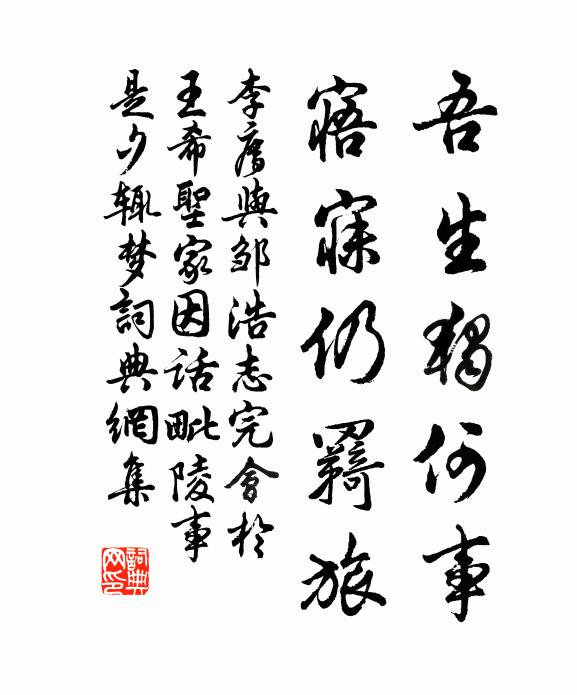 吾生獨何事
寤寐仍羇旅
李廌與邹浩志完會於
王希聖家因話毗陵事
是夕輒梦詞典網集
詞典
网印